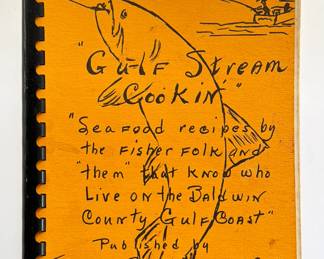 "Gulf Stream
Cookin'"
"Seafood recipes by
the fisher folk and
"them" that know who
Live on the Baldwin
County Gulf Coast"
Published by